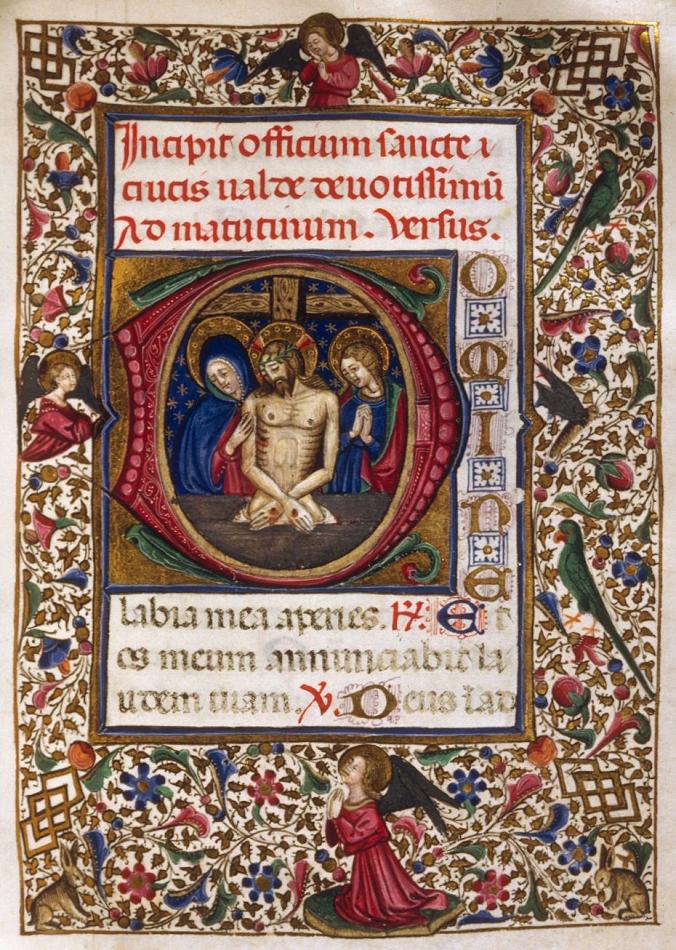 Incipit officium sancte
crucis ualde deuotissimũ
Ad matutinum. Versus.
DOMINE
labia mea aperies. ℟. Et
os meum annunciabit la
udem tuam. ℣. Deus